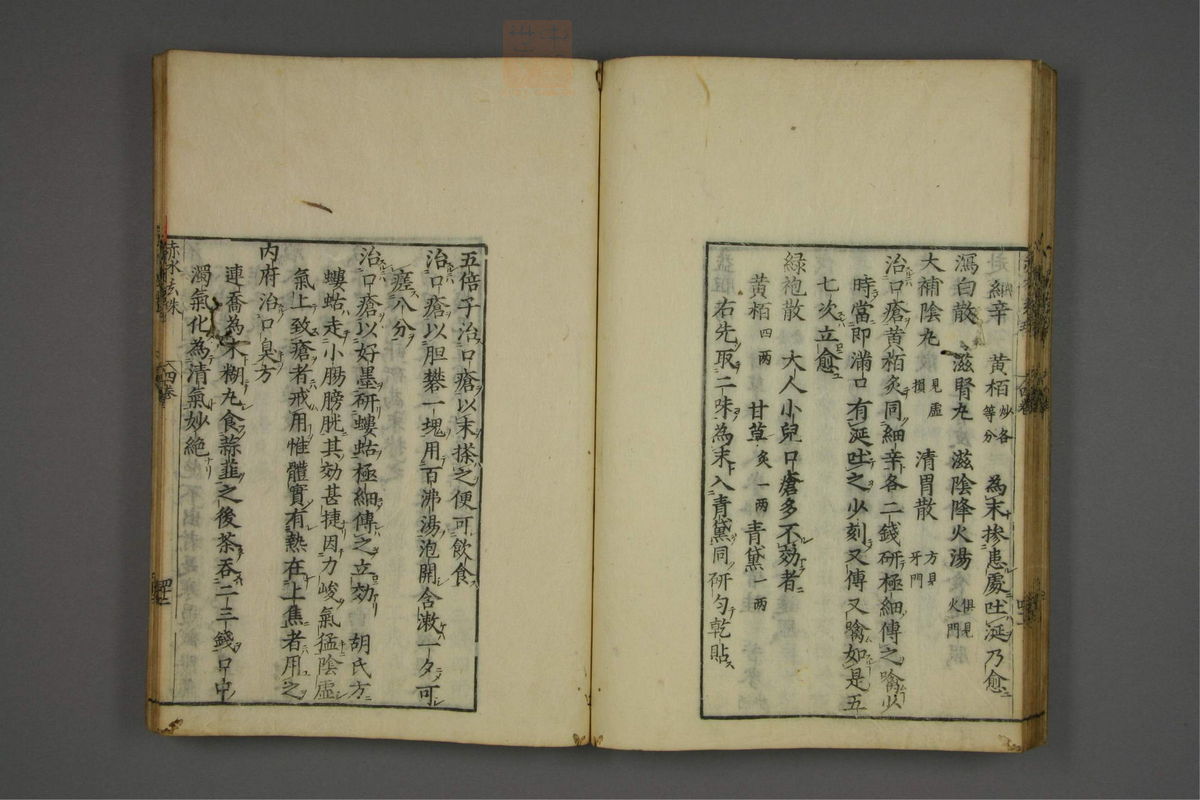 赴細辛 黄栢炒各等分 為末摻患處吐涎乃愈
瀉白散 滋腎丸 滋陰降火湯俱見火門
大補陰丸見虚損 清胃散方見牙門
治口瘡黄栢炙同細辛各二錢研極細傅之噙少
時當即滿口有涎吐之少刻又傅又噙如是五
七次立愈
緑袍散 大人小兒口瘡多不効者
黄栢四兩 甘草炙一兩 青黛一兩
右先取二味為末入青黛同研匀乾貼
五倍子治口瘡以末搽之便可飲食
治口瘡以胆礬一塊用百沸湯泡開含漱一夕可
瘥八分
治口瘡以好墨研螻蛄極細傅之立効 胡氏方
螻蛄走小腸膀胱其効甚捷因力峻氣猛陰虚
氣上致瘡者戒用惟體實有熱在上焦者用之
内府治口臭方
連喬為末糊丸食蒜韮之後茶吞二三錢口中
濁氣化為清氣妙絶
赤水玄珠 四卷